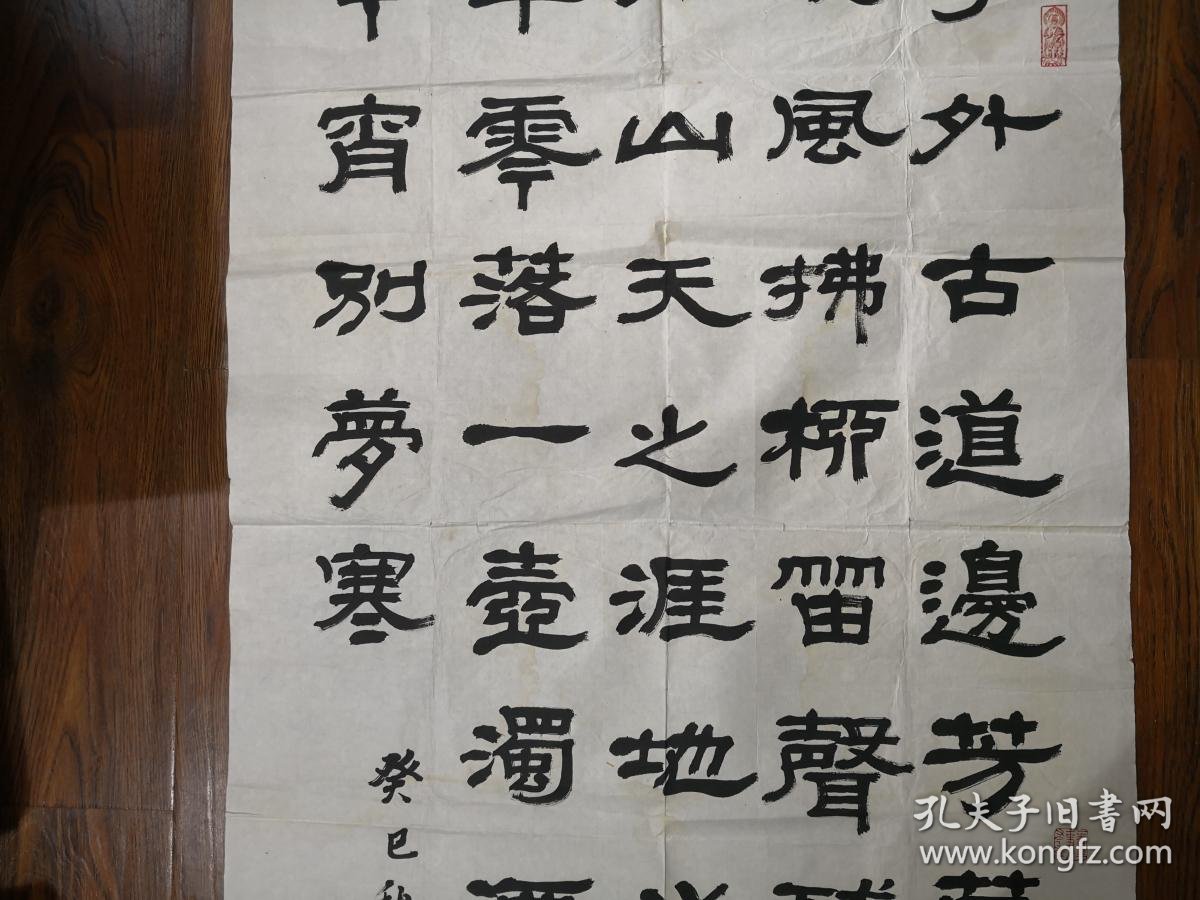 外古道邊芳
風拂柳笛聲
山天之涯地
零落一壺濁
宵別夢寒
癸巳
孔夫子旧書网
www.kongfz.com